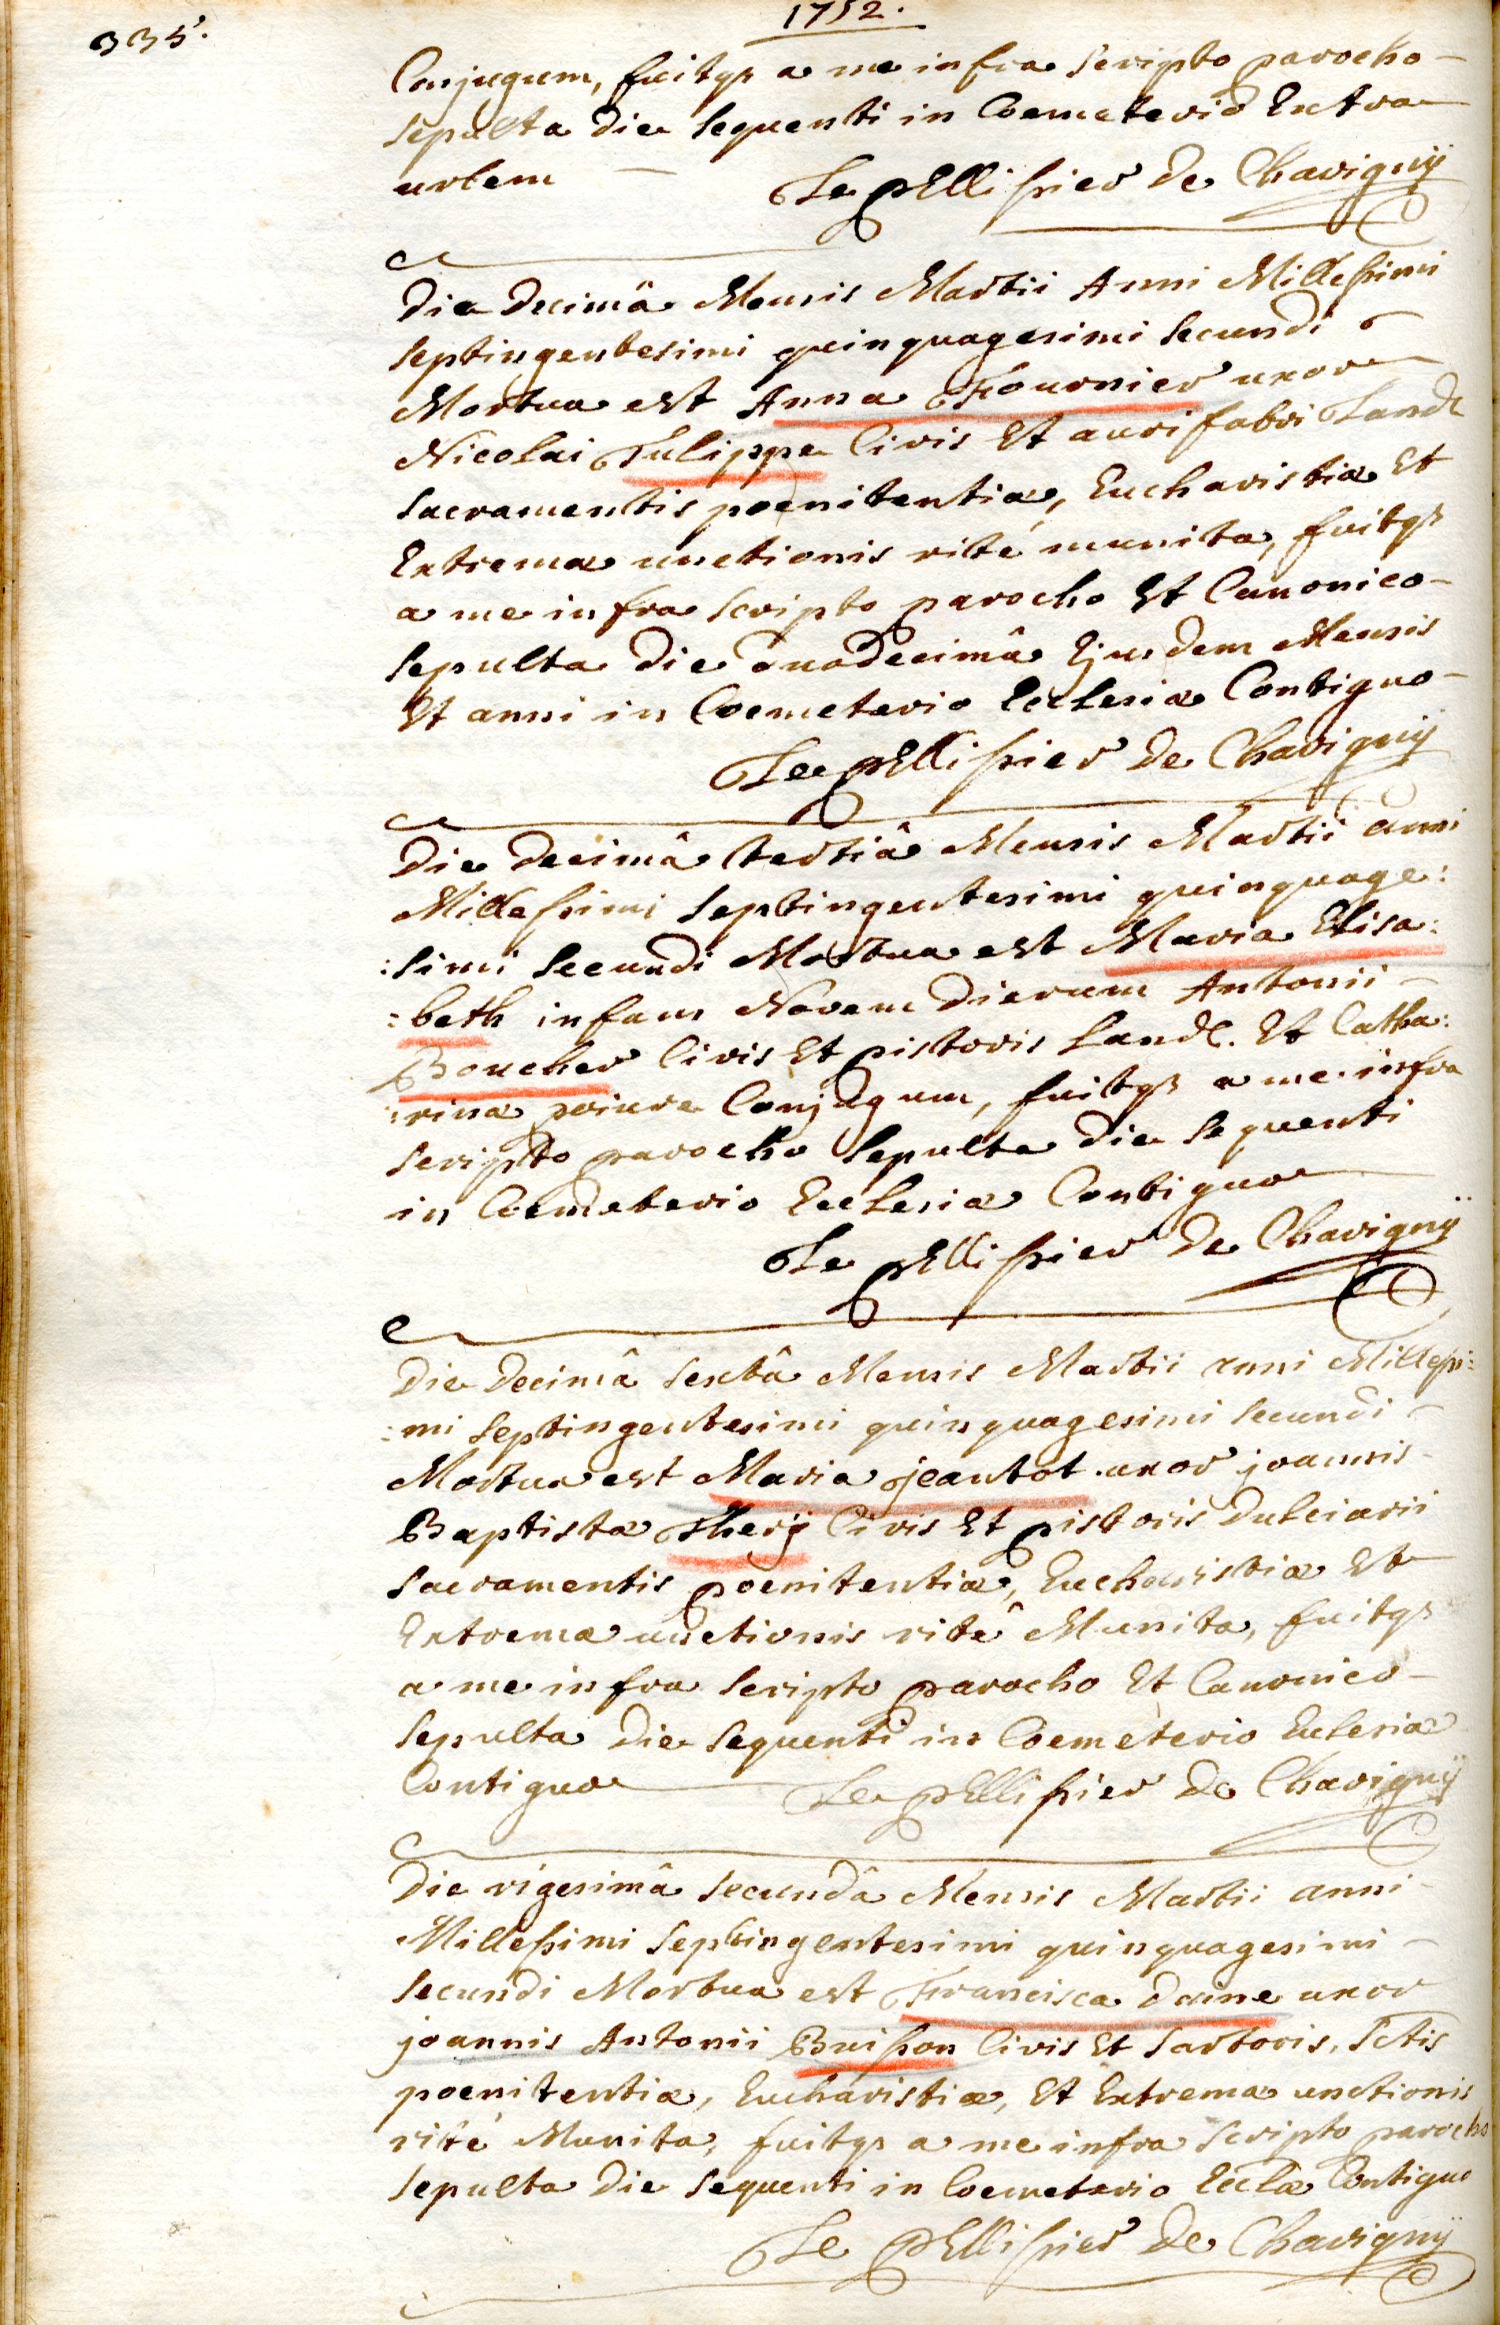 1752.
335.
Conjugum, fuitqs a me infra scripto parocho
sepulta die sequenti in Coemeterio Extra
urbem — Le pellissier de Chavignÿ
Die decimâ Mensis Martii Anni Millessimi
septingentesimi quinquagesimi secundi
Mortua est Anna Fournier uxor
Nicolai Tulippe Civis Et aurifabri Land.
sacramentis poenitentiæ, Eucharistiæ Et
Extremæ unctionis rité munita, fuitqs
a me infra scripto parocho Et Canonico
sepulta die duodecimâ Ejusdem Mensis
Et anni in Coemeterio Ecclesiæ Contiguo
Le pellissier de Chavignÿ
Die decimâ tertiâ Mensis Martii anni
Millessimi septingentesimi quinquage:
:simi secundi Mortua est Maria Elisa:
:beth infans Novem dierum Antonii
Boucher Civis Et pistoris Land. Et Catha:
:rinæ Conjugum, fuitqs a me infra
scripto parocho sepulta die sequenti
in Coemeterio Ecclesiæ Contiguo
Le pellissier de Chavignÿ
Die decimâ sextâ Mensis Martii anni Millessi:
:mi septingentesimi quinquagesimi secundi
Mortua est Maria jeantot uxor joannis
Baptistæ Therÿ Civis Et pistoris dulciarii
sacramentis poenitentiæ, Eucharistiæ Et
Extremæ unctionis ritê Munita, fuitqs
a me infra scripto parocho Et Canonico
sepulta die sequenti in Coemeterio Ecclesiæ
Contiguo Le pellissier de Chavignÿ
Die vigesimâ secundâ Mensis Martii anni
Millessimi septingentesimi quinquagesimi
secundi Mortua est Francisca daine uxor
joannis Antonii Buisson Civis Et sartoris, sctis
poenitentiæ, Eucharistiæ, Et Extremæ unctionis
rité Munita, fuitqs a me infra scripto parocho
sepulta die sequenti in Coemeterio Ecclæ Contiguo
Le pellissier de Chavignÿ